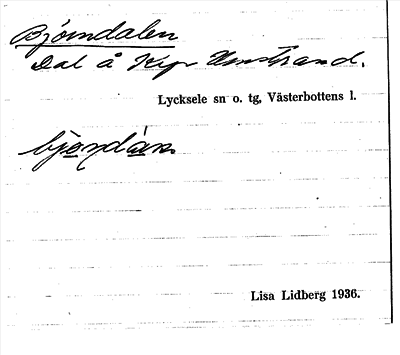 Bjørndalen
Dal å Kpr Umstrand.
Lycksele sn o. tg, Västerbottens l.
Lisa Lidberg 1936.